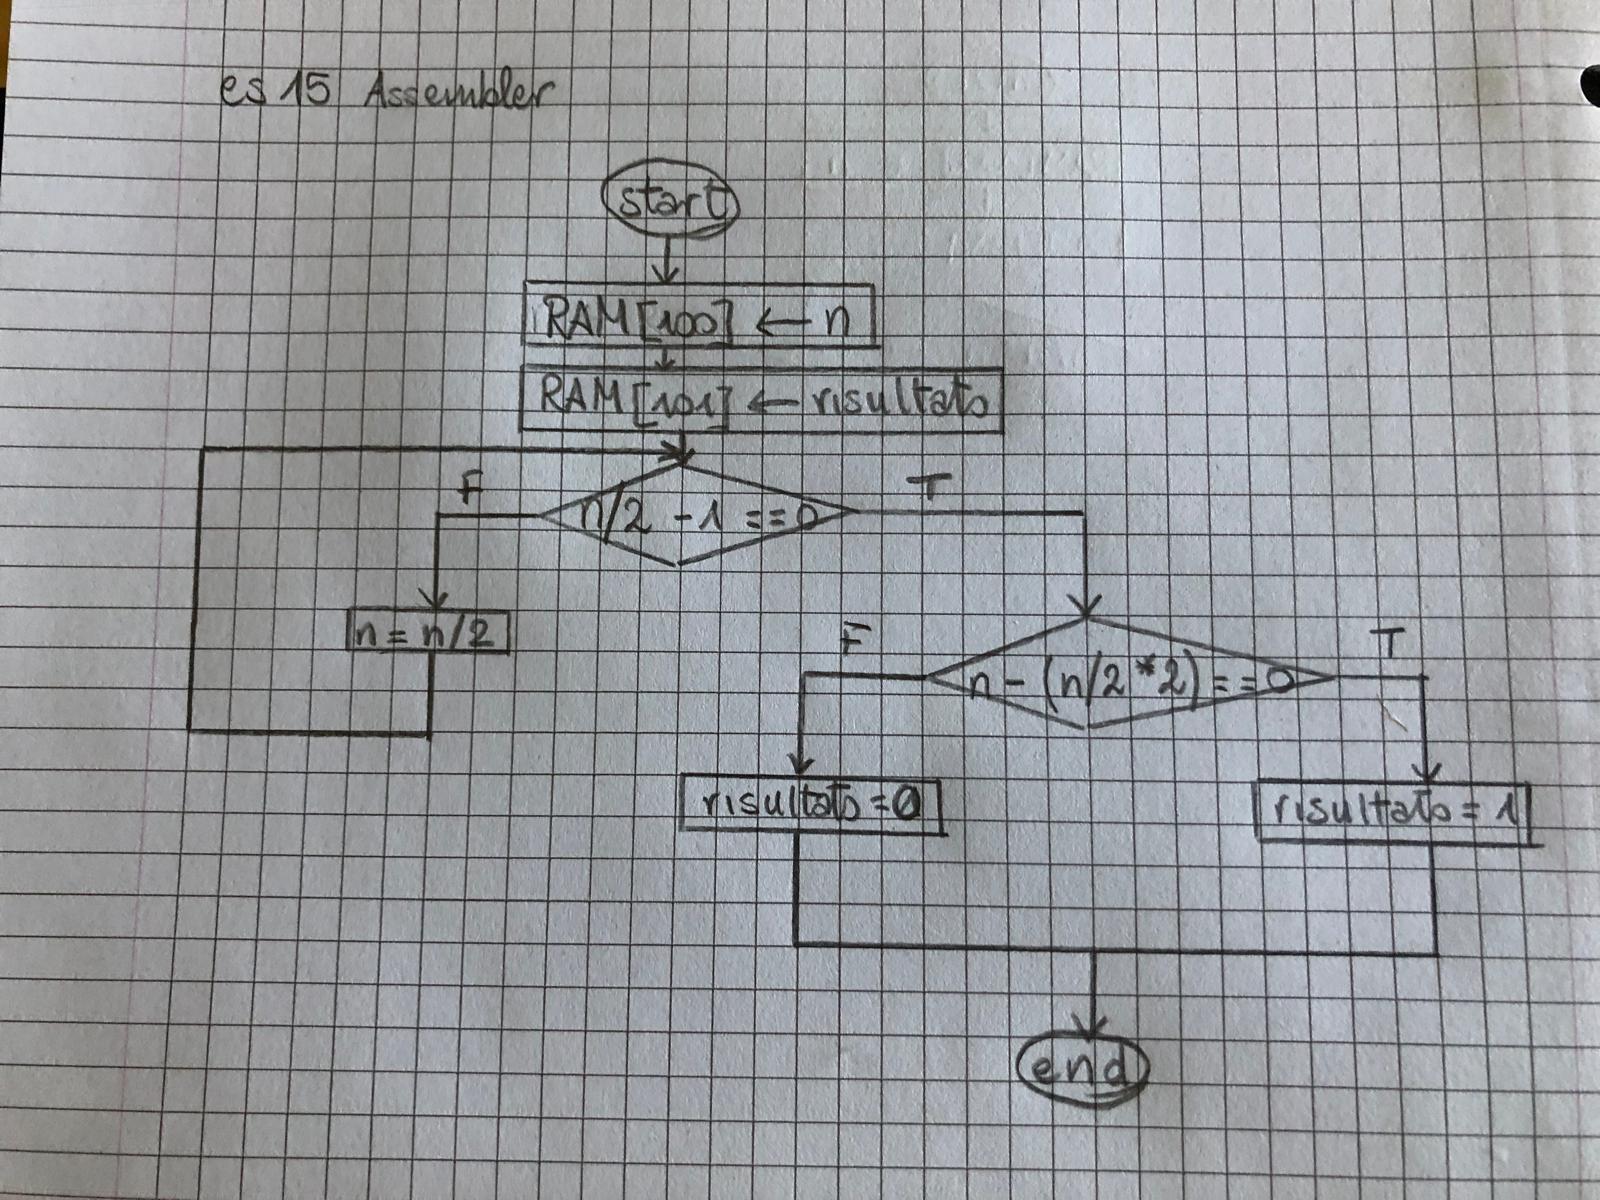 es 15 Assembler
start
RAM[100] ← n
RAM[101] ← risultato
F
n/2 -1 ==0
T
n = n/2
F
n - (n/2*2)==0
T
risultato =0
risultato = 1
end